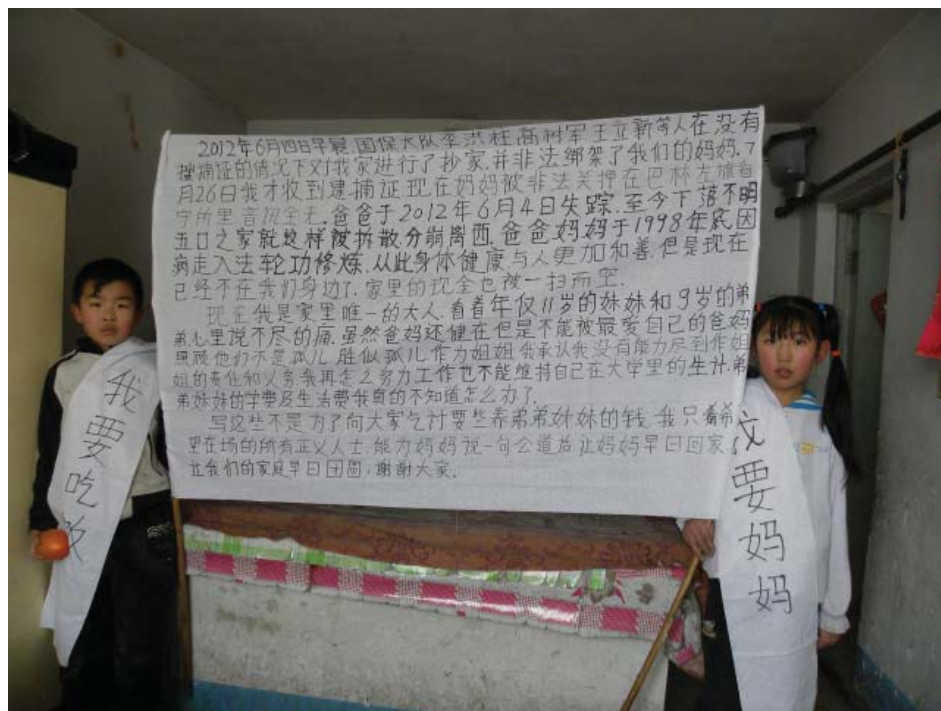 2012年6月四日早晨，国保大队李洪柱，高树军王立新等人在没有
搜捕证的情况下对我家进行了抄家，并非法绑架了我们的妈妈，7
月26日我才收到逮捕证现在妈妈被非法关押在巴林左旗看
守所里音讯全无，爸爸于2012年6月4日失踪，至今下落不明
五口之家就这样被拆散，分崩离西，爸爸妈妈于1998年底因
病走入法轮功修炼，从此身体健康与人更加和善，但是现在
已经不在我们身边了，家里的现金也被一扫而空，
现在我是家里唯一的大人，看着年仅11岁的妹妹和9岁的弟
弟，心里说不尽的痛，虽然爸妈还健在但是不能被最爱自己的爸妈
照顾他们不是孤儿胜似孤儿作为姐姐我承认我没有能力尽到作姐
姐的责任和义务，我再怎么努力工作也不能维持自己在大学里的生计，弟
弟妹妹的学费及生活费我真的不知道怎么办了，
写这些不是为了向大家乞讨要些养弟弟妹妹的钱，我只希
望在场的所有正义人士，能为妈妈说一句公道话让妈妈早日回家
让我们的家庭早日团圆，谢谢大家，
我要吃
要妈妈